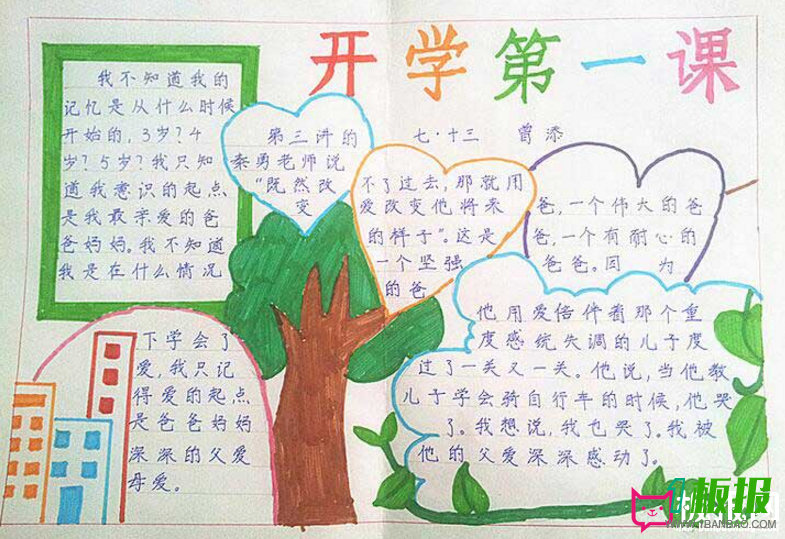 开学第一课
七·十三 曾添
我不知道我的
记忆是从什么时候
开始的,3岁?4
岁?5岁?我只知
道我意识的起点
是我最亲爱的爸
爸妈妈。我不知道
我是在什么情况
下学会了
爱,我只记
得爱的起点
是爸爸妈妈
深深的父爱
母爱。
第三讲的
秦勇老师说
“既然改
变
不了过去,那就用
爱改变他将来
的样子”。这是
一个坚强
的爸
爸,一个伟大的爸
爸,一个有耐心的
爸爸。因 为
他用爱陪伴着那个重
度感统失调的儿子度
过了一关又一关。他说,当他教
儿子学会骑自行车的时候,他哭
了。我想说,我也哭了。我被
他的父爱深深感动了。
板报
WWW.1BANBAO.COM